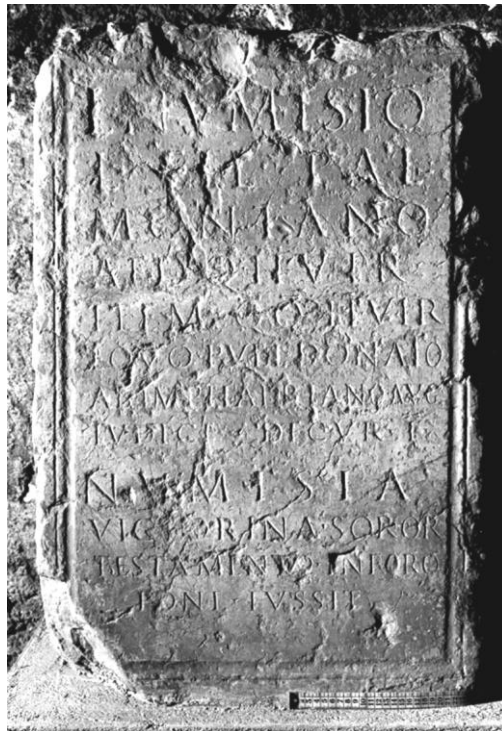 L·NVMISIO
L·FIL·PAL
MONTANO
AED·Q·II·VIR
ITEM·Q·Q·II·VIR
EQVO·PVBL·DONATO
AB·IMP·HADRIANO·AVG
IVDICI·DECVR·I
NVMISIA
VICTORINA·SOROR
TESTAMENTO·IN FORO
PONI·IVSSIT